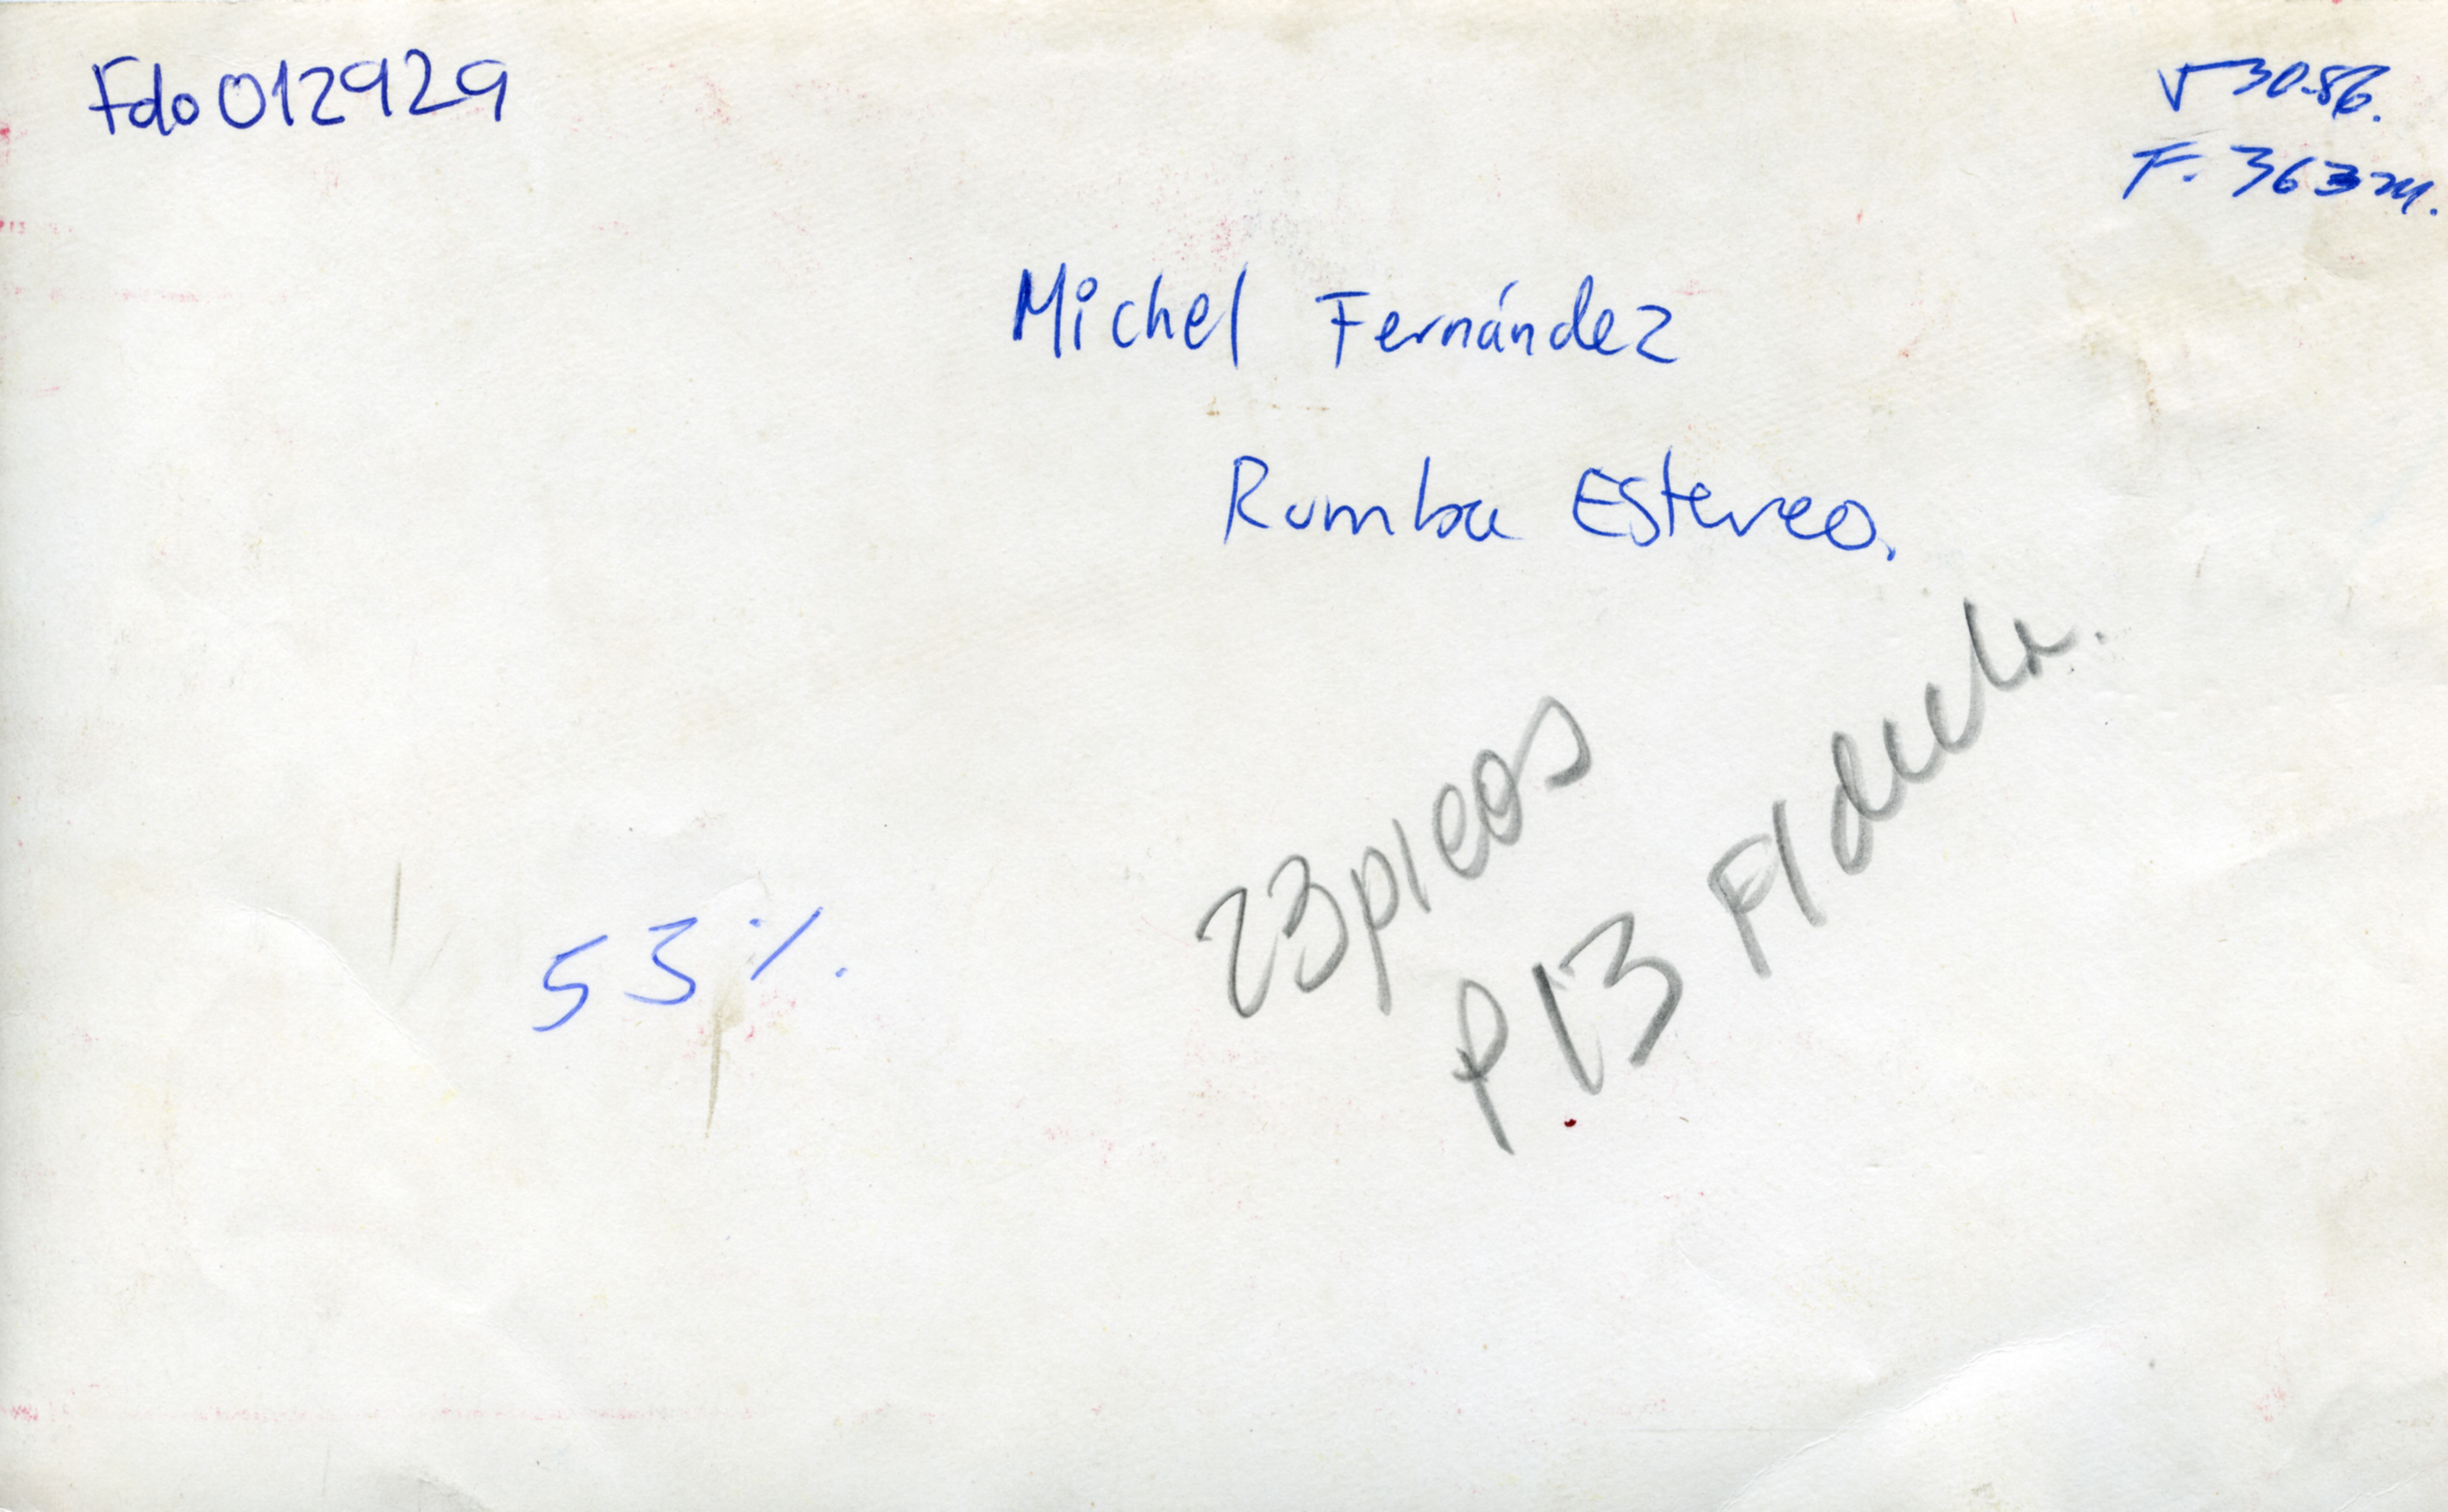 Fdo 012929
V 3056.
F. 363 M.
Michel Fernández
Rumba Estereo.
23 picas
P. 13
53%.